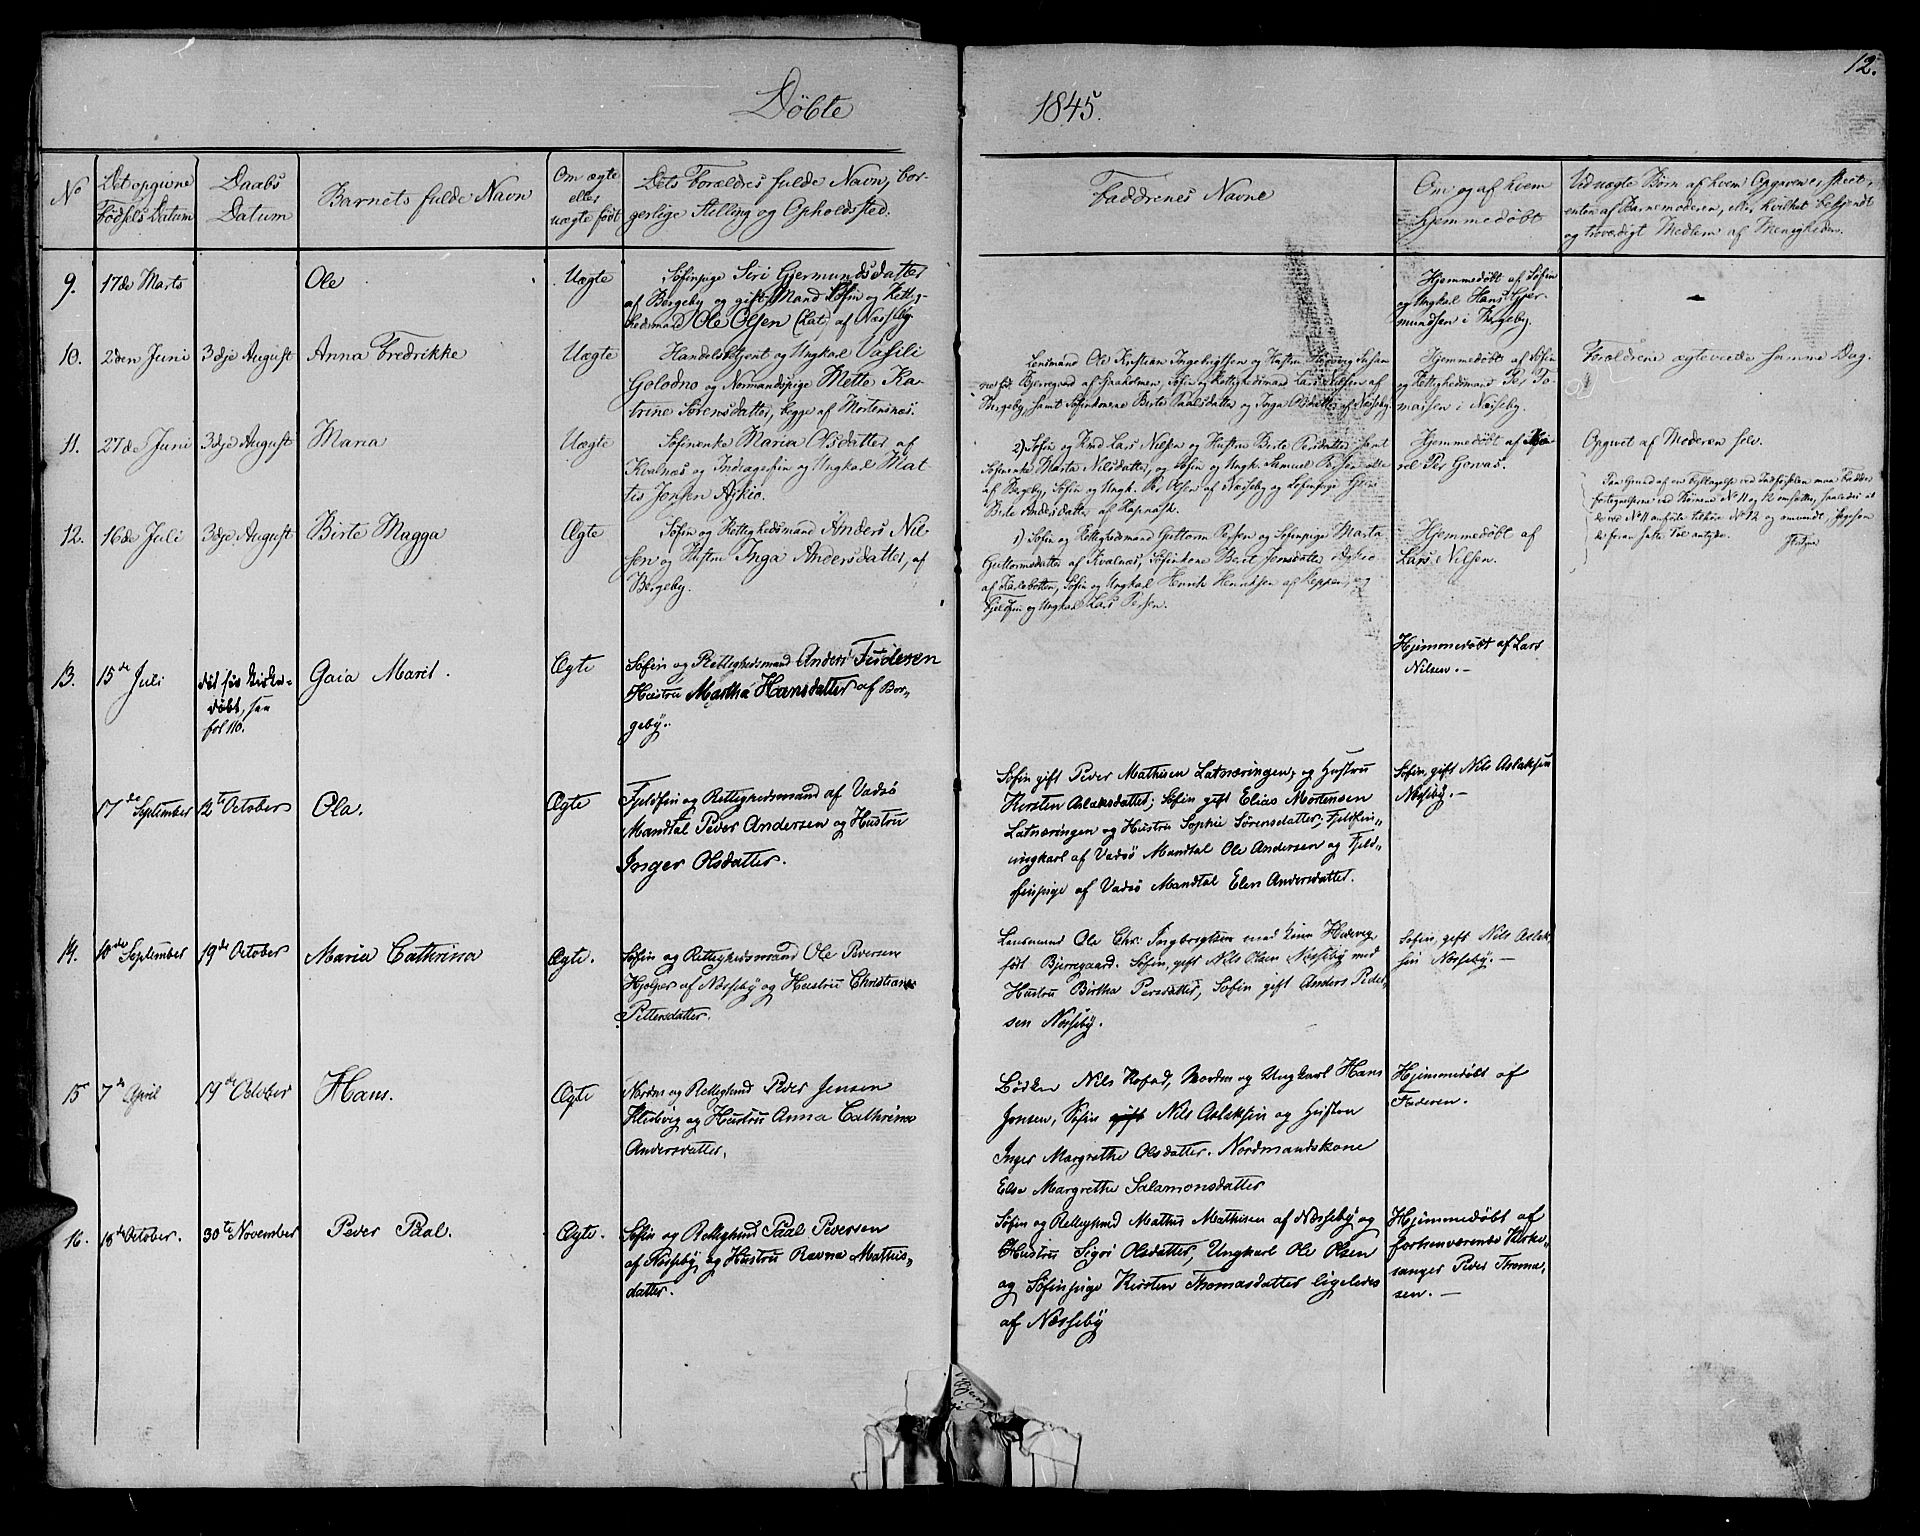 12.
Döbte
1845.
No
Det opgivne
Födsels-Datum
Daabs
Datum
Barnets fulde Navn
Om ægte
eller
uægte födt
Dets Forældres fulde Navn, bor-
gerlige Stilling og Opholdssted.
Faddrenes Navne
Om og af hvem
hjemmedöbt
Ved uægte Børn af hvem Opgavene, skeet,
enten af Barnemoderen, eller hvilket bekjendt
og troværdigt Medlem af Menigheden.
9.
17de Marts
Ole
Uægte
Söfinpige Siri Gjermundsdatter
af Bergeby og gift Mand Söfin og Rettig-
hedsmand Ole Olsen (Lat) af Næsseby
Hjemmedöbt af Söfin
og Ungkal Hans Gjer-
mundsen i Bergeby.
10.
2den Juni
3dje August
Anna Fredrikke
Uægte
Handelsbetjent og Ungkal Vasili
Golodno og Normandspige Mette Ka-
trine Sörensdatter, begge af Mortensnes.
Lensmand Ole Kristian Ingebrigtsen og Hustru Hedevig
Bjerregord af Söfin og Rettighedsmand Lars Nilsen af
Bergeby, samt Söfinkonerne Berte Paalsdatter og Inga Olsdatter af Næsseby.
Hjemmedöbt af Söfin
og Rettighedsmand Per To-
massen i Næsseby.
Forældrene ægteviede samme Dag.
11.
27de Juni
3dje August
Maria
Uægte
Söfinenke Maria Olsdatter af
Kvalnæs og Indragerfin og Ungkal Mat-
tis Jensen Ajkio.
2) Söfin og Rmd Lars Nilsen og Hustru Birte Persdatter samt
Söfinenke Marta Nilsdatter, og Söfin og Ungk. Samuel
af Bergeby, Söfin og Ungk. Per Olsen af Næsseby og Söfinpige
Berte Andersdatter af
Hjemmedöbt af
Per Gorvas.
Opgivet af Moderen selv.
Paa Grund af en Feiltagelse ved Indførselen maa Fadder-
fortegnelserne ved Börnene No 11 og 12 omsættes, saaledes at
de ved No 11 anförte tilhöre No 12 og omvendt,
de foran satte Tal antyde.
12.
16de Juli
3dje August
Birte Magga
Ægte
Söfin og Rettighedsmand Anders Nil-
sen og Hustru Inga Andersdatter, af
Bergeby.
1) Söfin og Rettighedsmand Guttorm Persen og Söfinpige Marta
Guttormsdatter af Kvalnæs, Söfinkone Berit Jonsdatter
af Karlebotten, Söfin og Ungkal Henrik Henriksen af og
Fjeldfin og Ungkal Lars Persen.
Hjemmedöbt af
Lars Nilsen.
13.
15de Juli
död før Kirke-
döbt, see
fol 110.
Gaia Marit.
Ægte
Söfin og Rettighedsmand Anders
Hustru Martha Hansdatter af Ber-
geby.
Hjemmedöbt af Lars
Nilsen.—
17de September
12te October
Ola.
Ægte
Fjeldfin og Rettighedsmand af Vadsö
Mandtal Peder Andersen og Hustru
Inger Olsdatter.
Söfin gift Peder Mathisen Latnæringen, og Hustru
Kirsten Aslaksdatter; Söfin gift Elias Mortensen
Latnæringen og Hustru Sophie Sörensdatter, Fjeldfin-
ungkarl af Vadsö Mandtal Ole Andersen og Fjeld-
finpige af Vadsö Mandtal Elen Andersdatter.
Söfin, gift Nils Aslaksen
Næsseby.—
14.
10de September
19de October
Maria Cathrina
Ægte.
Söfin og Rettighedsmand Ole Pedersen
Hjelper af Næsseby og Hustru Christiane
Pettersdatter.
Lensmand Ole Chr: Ingbregtsen med kone Hedevig
födt Bjerregaard. Söfin, gift Nils Olsen Næsseby med
Hustru Birtha Persdatter, Söfin gift Anders Peder-
sen Næsseby.
Söfin, gift Nils Aslak-
sen Næsseby.—
15
7de April
19de October
Hans.
Ægte
Nordm og Rettighmd Peder Jensen
og Hustru Anna Cathrina
Andersdatter.
Lödken Nils Kofod, Nordm og Ungkarl Hans
Jensen, Söfin gift Nils Aslaksen og Hustru
Inger Margrethe Olsdatter. Nordmandskone
Else Margrethe Salamonsdatter
Hjemmedöbt af
Faderen.
16.
18de October.
30te November
Peder Paal.
Ægte.
Söfin og Rettighmd Paal Pedersen
af Næsseby og Hustru Ravna Mathis-
datter.
Söfin og Rettighmd Mathis Mathisen af Næsseby og
Hustru Sigri Olsdatter, Ungkarl Ole Olsen
og Söfinpige Kirsten Thomasdatter ligeledes
af Næsseby
Hjemmedöbt af
forhenværende Kirke-
sanger Peder Thoma-
sen.—